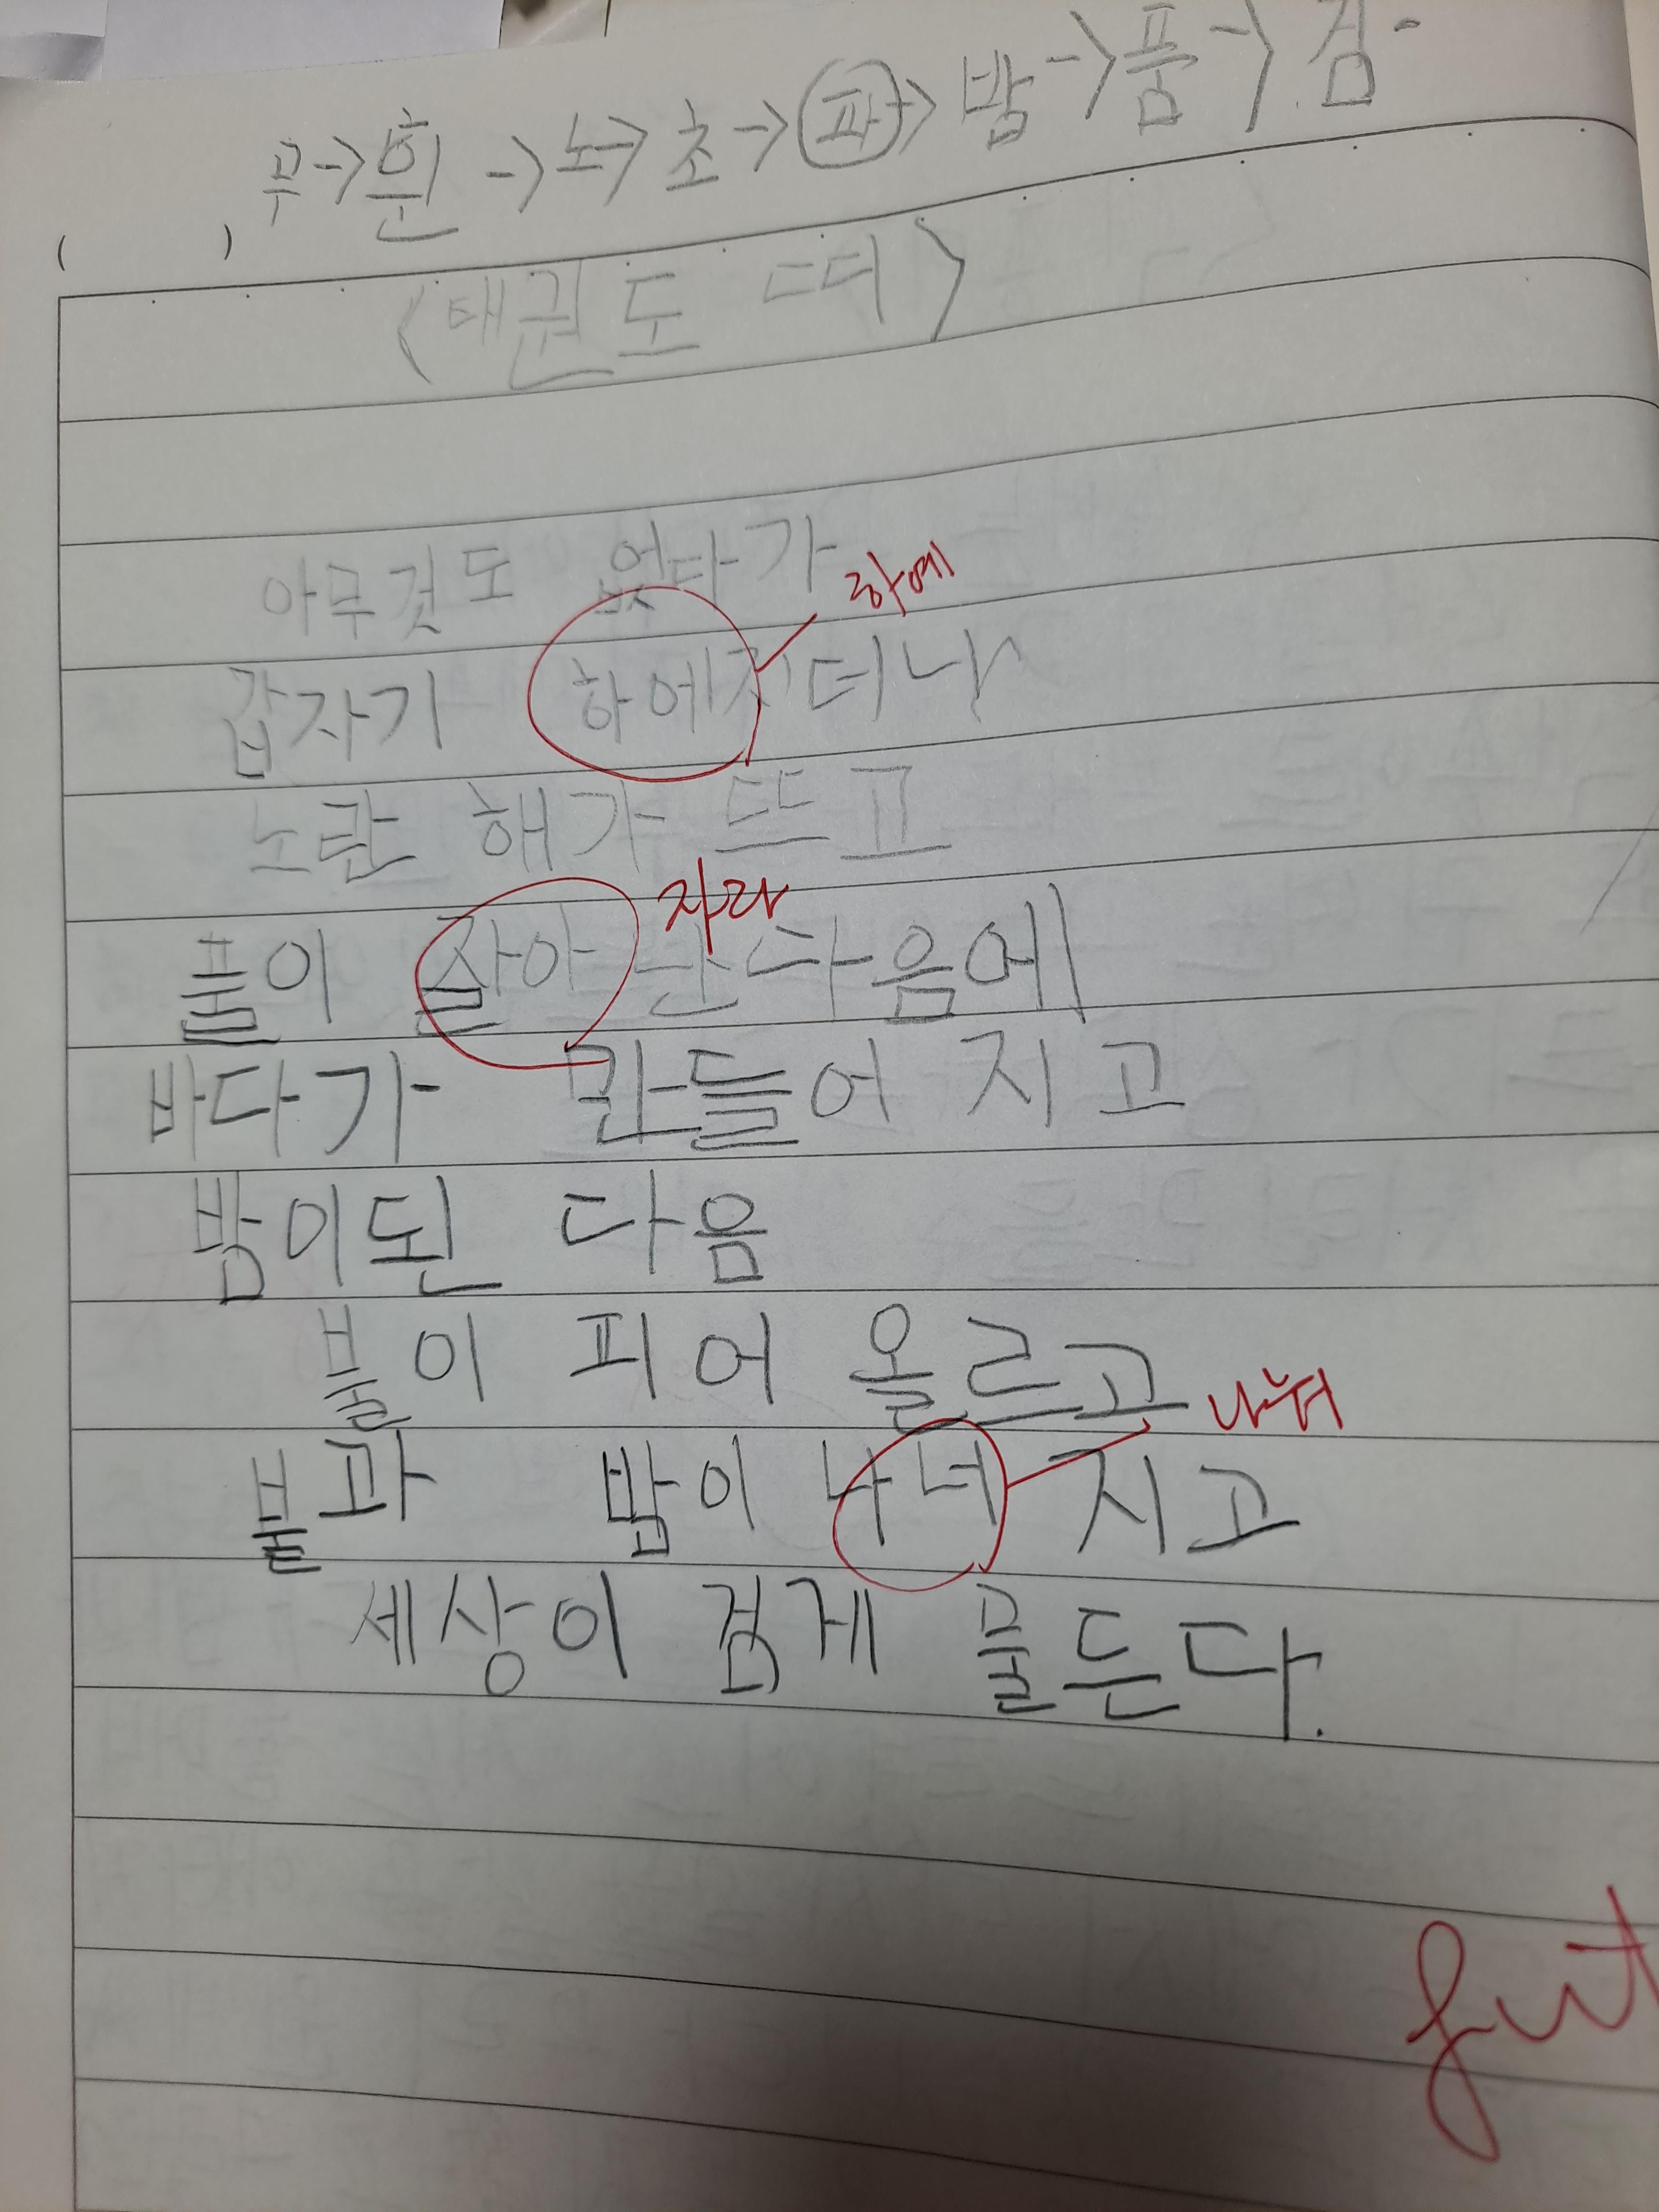 무->흰->노->초->파->밤->품->검-
( )
<태권도 띠>
아무것도 없다가
하예
갑자기 하에지더니
노란 해가 뜨고
자라
풀이 잘아 난다음에
바다가 만들어 지고
밤이된 다음
불이 피어 올르고
나눠
불과 밤이 나너 지고
세상이 검게 물든다.